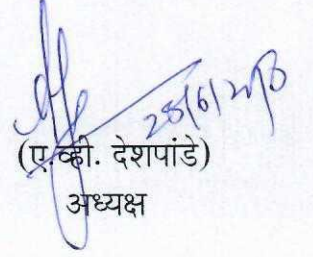 28/6/2018
(ए.व्ही. देशपांडे)
अध्यक्ष